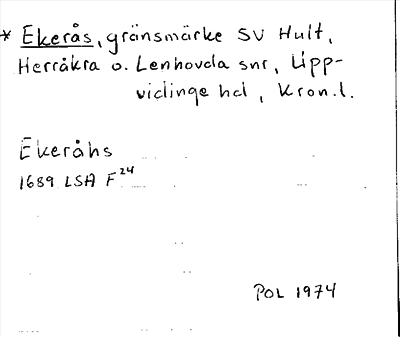 * Ekerås, gränsmärke SV Hult,
Herråkra o. Lenhovda snr, Upp-
vidinge hd, Kron.l.
Ekeråhs
1689 LSA F24
POL 1974